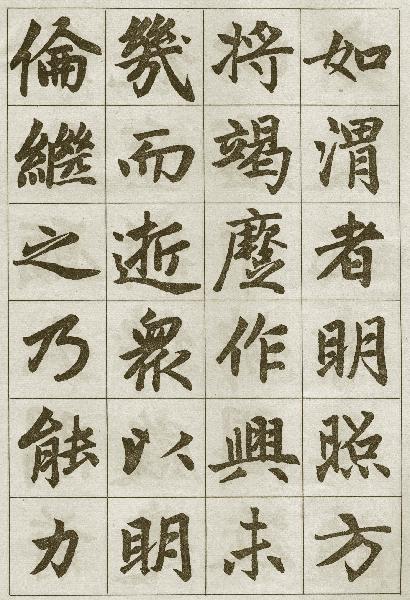 如渭者明照方
將竭作興未
幾而逝衆以明
倫繼之乃能力